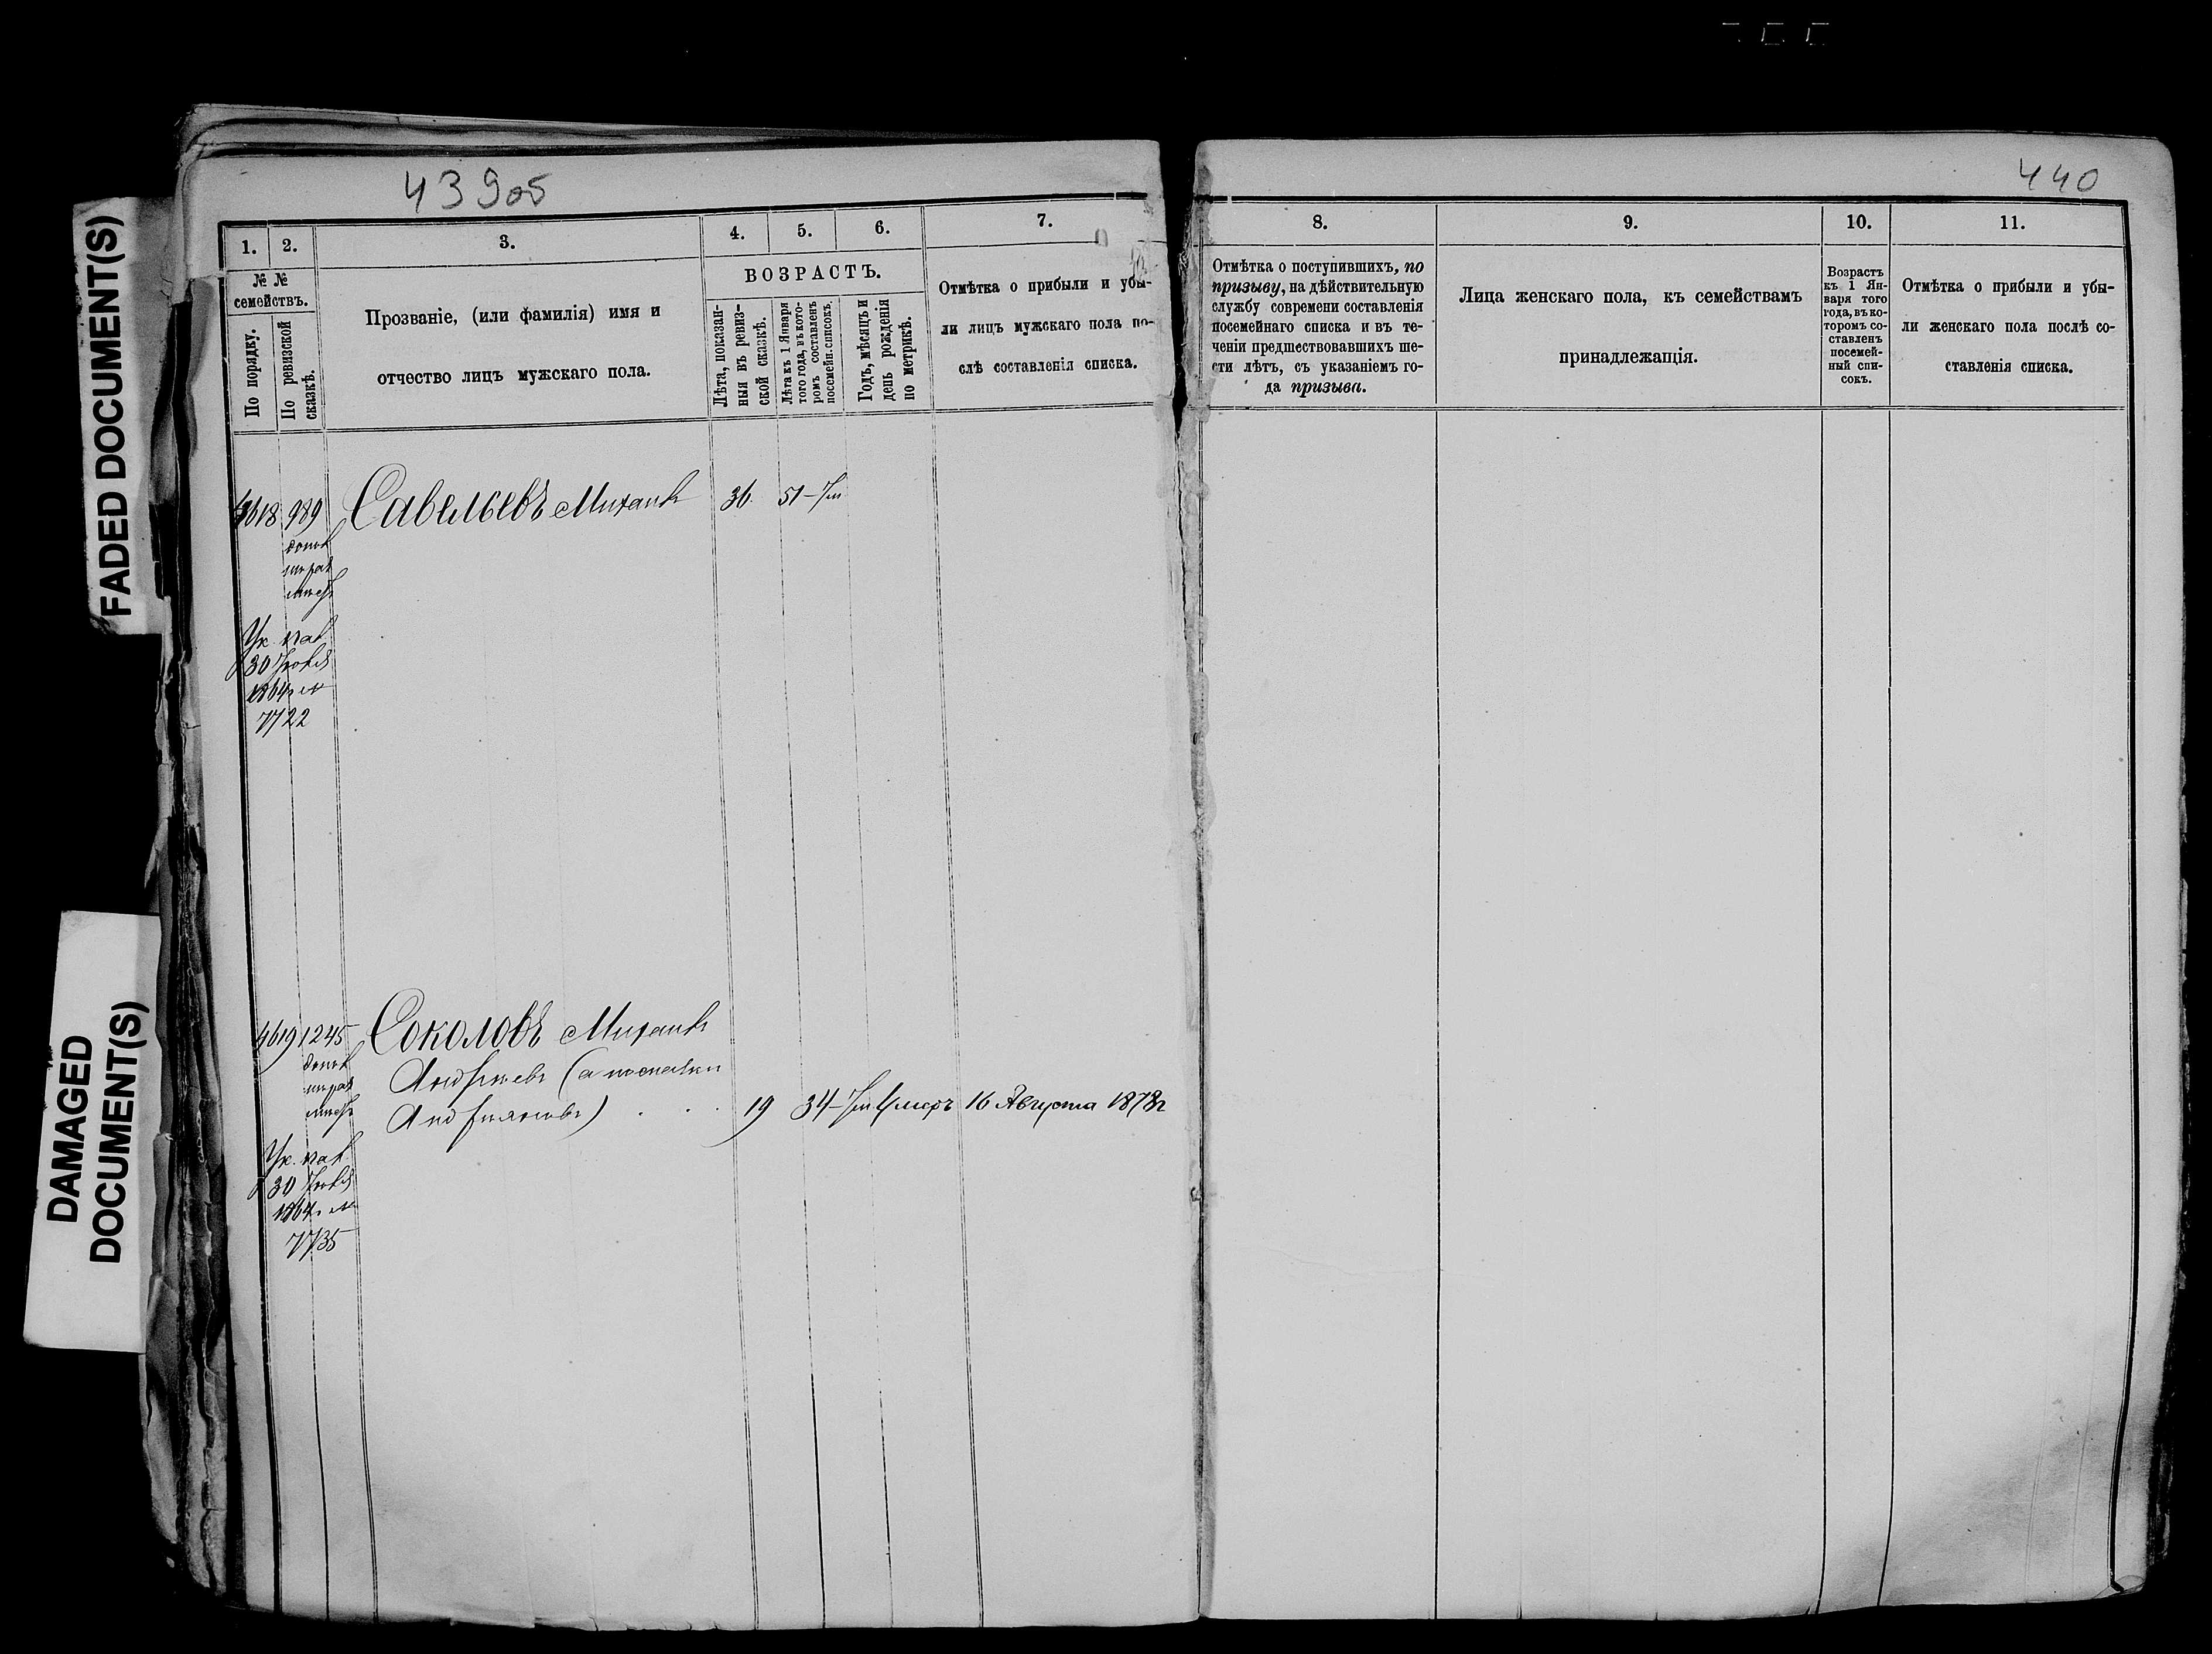 FADED DOCUMENT(S)
DAMAGED
DOCUMENT(S)
439об
1.
2.
3.
4.
5.
6.
7.
№ №
семействъ.
По порядку.
По ревизской
сказкѣ.
Прозваніе, (или фамилія) имя и
отчество лицъ мужскаго пола.
ВОЗРАСТЪ.
Лѣта, показан-
ныя въ ревиз-
ской сказкѣ.
Лѣта къ 1 Января
того года, въ кото-
ромъ составленъ
посемейн. списокъ.
Годъ, мѣсяцъ и
день рожденія
по метрикѣ.
Отмѣтка о прибыли и убы-
ли лицъ мужскаго пола по-
слѣ составленія списка.
4618 989 Савельевъ Михаилъ 36 51
Ук. 
30 
1864
7722
4619 1245 Соколовъ Михаилъ
Андреевъ (а по
19 34 Умеръ 16 Августа 1878г
Ук.
30
1864
7735
440
8.
9.
10.
11.
Отмѣтка о поступившихъ, по
призыву, на дѣйствительную
службу современи составленія
посемейнаго списка и въ те-
ченіи предшествовавшихъ ше-
сти лѣтъ, съ указаніемъ го-
да призыва.
Лица женскаго пола, къ семействамъ
принадлежащія.
Возрастъ
къ 1 Ян-
варя того
года, въ ко-
торомъ со-
ставленъ
посемей-
ный спи-
сокъ.
Отмѣтка о прибыли и убы-
ли женскаго пола послѣ со-
ставленія списка.